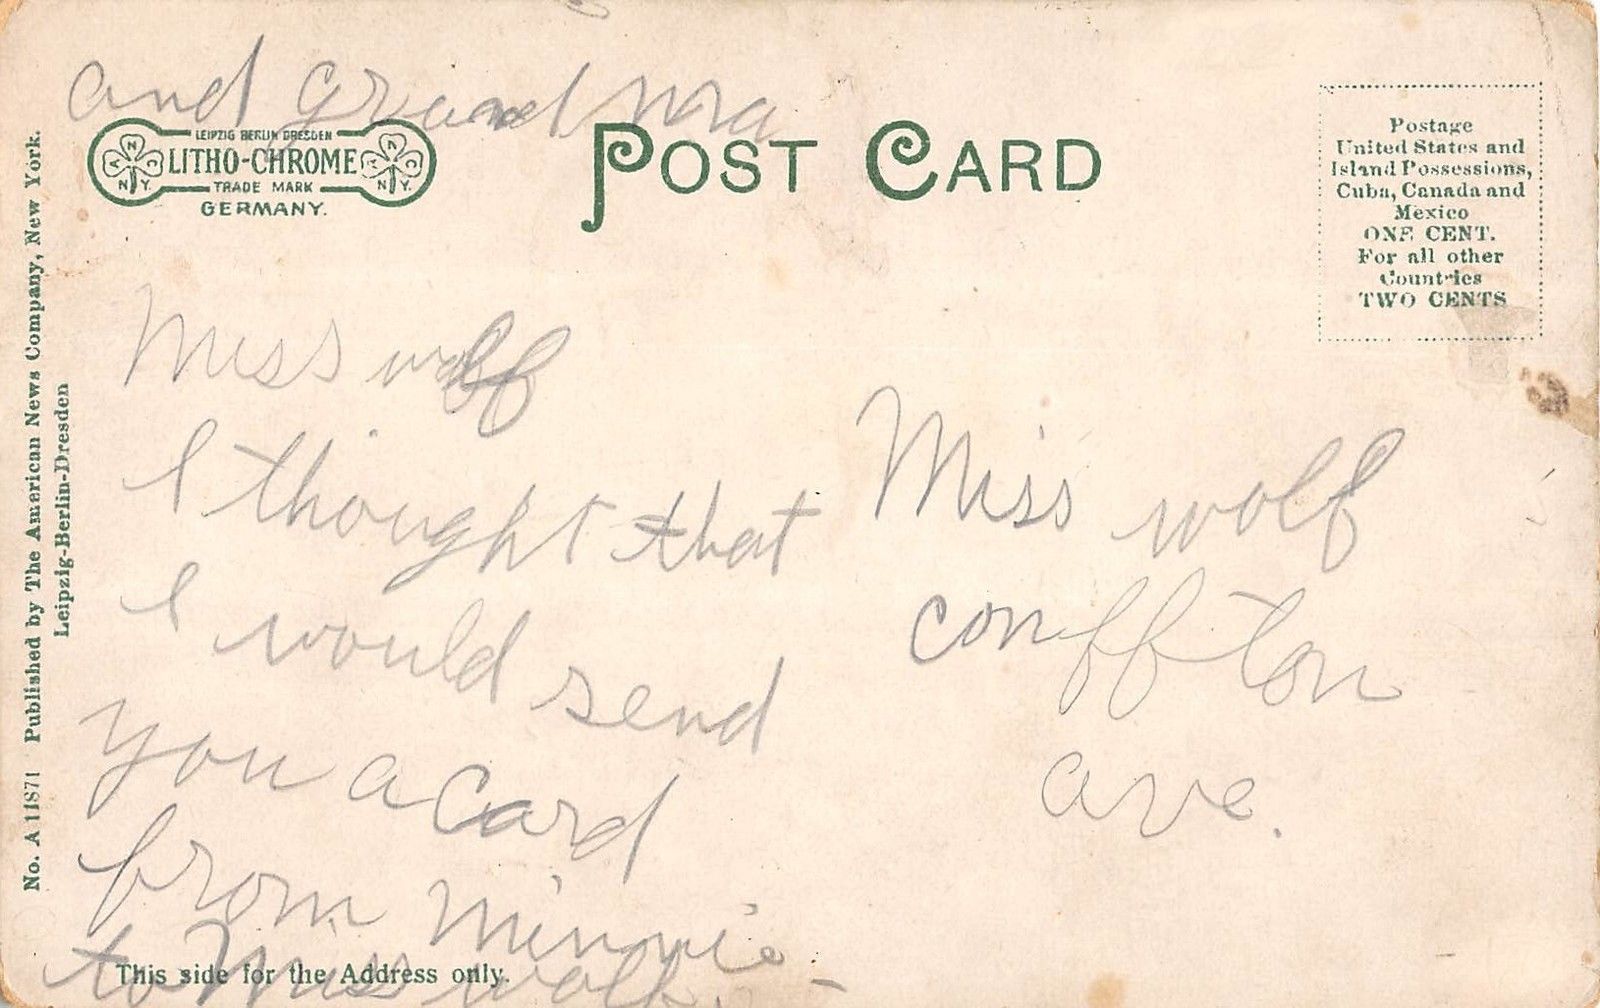 and grandma
LEIPZIG BERLIN DRESDEN
LITHO-CHROME
TRADE MARK
GERMANY.
A N C N.Y.
A N C N.Y.
POST CARD
Postage
United States and
Island Possessions,
Cuba, Canada and
Mexico
ONE CENT.
For all other
Countries
TWO CENTS
No. A 11871 Published by The American News Company, New York.
Leipzig-Berlin-Dresden
Miss wolf
I thought that
I would send
you a Card
from Minnie
to Miss wolf.
This side for the Address only.
Miss wolf
conffton
ave.